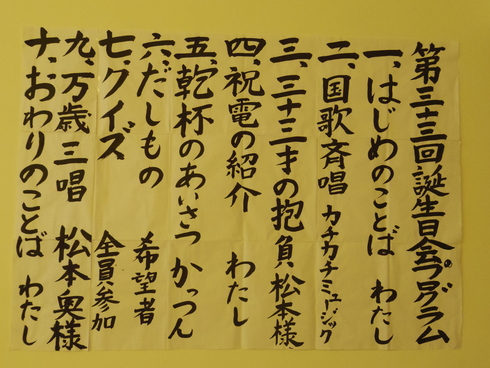 第三十三回誕生日会プログラム
一、はじめのことば わたし
二、国歌斉唱 カチカチミュージック
三、三十三才の抱負 松本様
四、祝電の紹介 わたし
五、乾杯のあいさつ かっつん
六、だしもの 希望者
七、クイズ 全員参加
九、万歳三唱 松本奥様
十、おわりのことば わたし